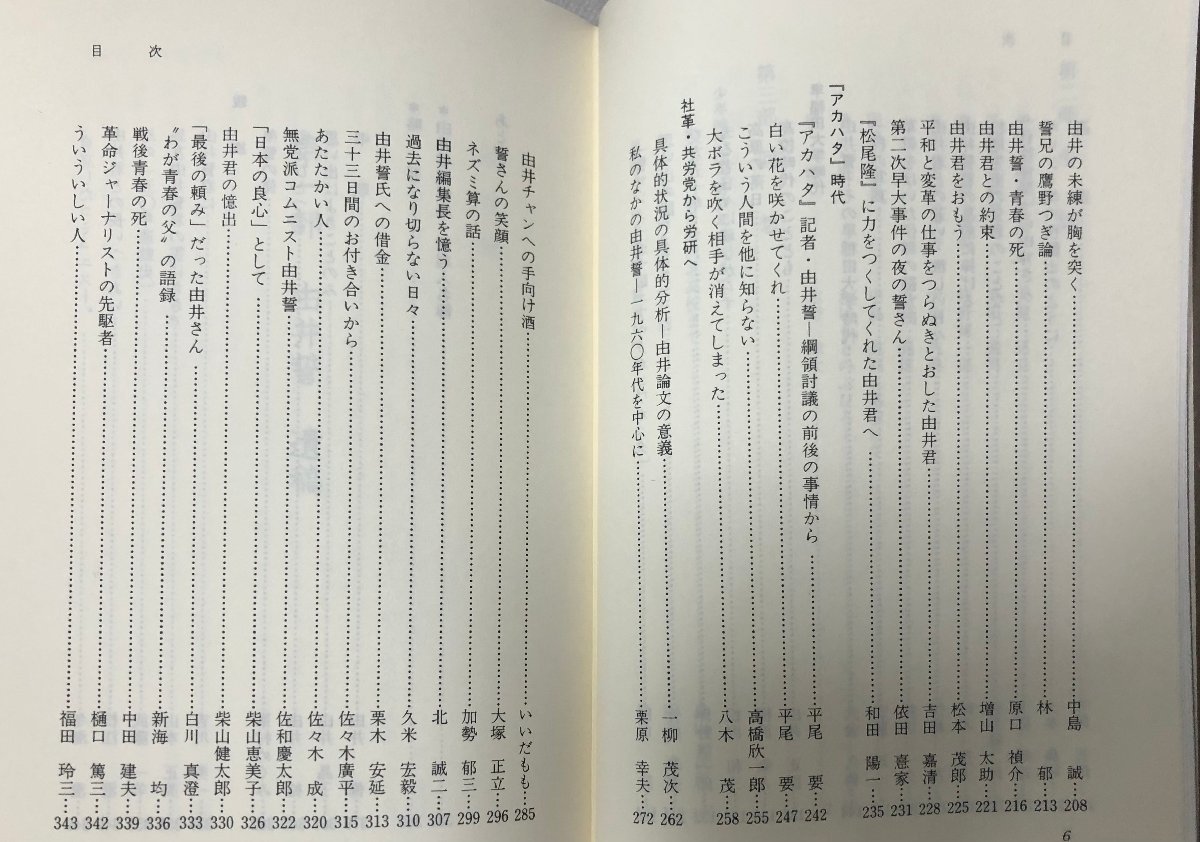 由井の未練が胸を突く……中島 誠…208
誓兄の鷹野つぎ論……林 郁…213
由井誓・青春の死……原口 禎介…216
由井君との約束……増山 太助…221
由井君をおもう……松本 茂郎…225
平和と変革の仕事をつらぬきとおした由井君……吉田 嘉清…228
第二次早大事件の夜の誓さん……依田 憙家…231
『松尾隆』に力をつくしてくれた由井君へ……和田 陽一…235
『アカハタ』時代
『アカハタ』記者・由井誓―綱領討議の前後の事情から……平尾 要…242
白い花を咲かせてくれ……平尾 要…247
こういう人間を他に知らない……高橋欣一郎…255
大ボラを吹く相手が消えてしまった……八木 茂…258
社革・共労党から労研へ
具体的状況の具体的分析―由井論文の意義……一柳 茂次…262
私のなかの由井誓―一九六〇年代を中心に……栗原 幸夫…272
6
目 次
由井チャンへの手向け酒……いいだもも…285
誓さんの笑顔……大塚 正立…296
ネズミ算の話……加勢 郁三…299
由井編集長を憶う……北 誠二…307
過去になり切らない日々……久米 宏毅…310
由井誓氏への借金……栗木 安延…313
三十三日間のお付き合いから……佐々木廣平…315
あたたかい人……佐々木 成…320
無党派コムニスト由井誓……佐和慶太郎…322
「日本の良心」として……柴山恵美子…326
由井君の憶出……柴山健太郎…330
「最後の頼み」だった由井さん……白川 真澄…333
〝わが青春の父〟の語録……新海 均…336
戦後青春の死……中田 建夫…339
革命ジャーナリストの先駆者……樋口 篤三…342
ういういしい人……福田 玲三…343